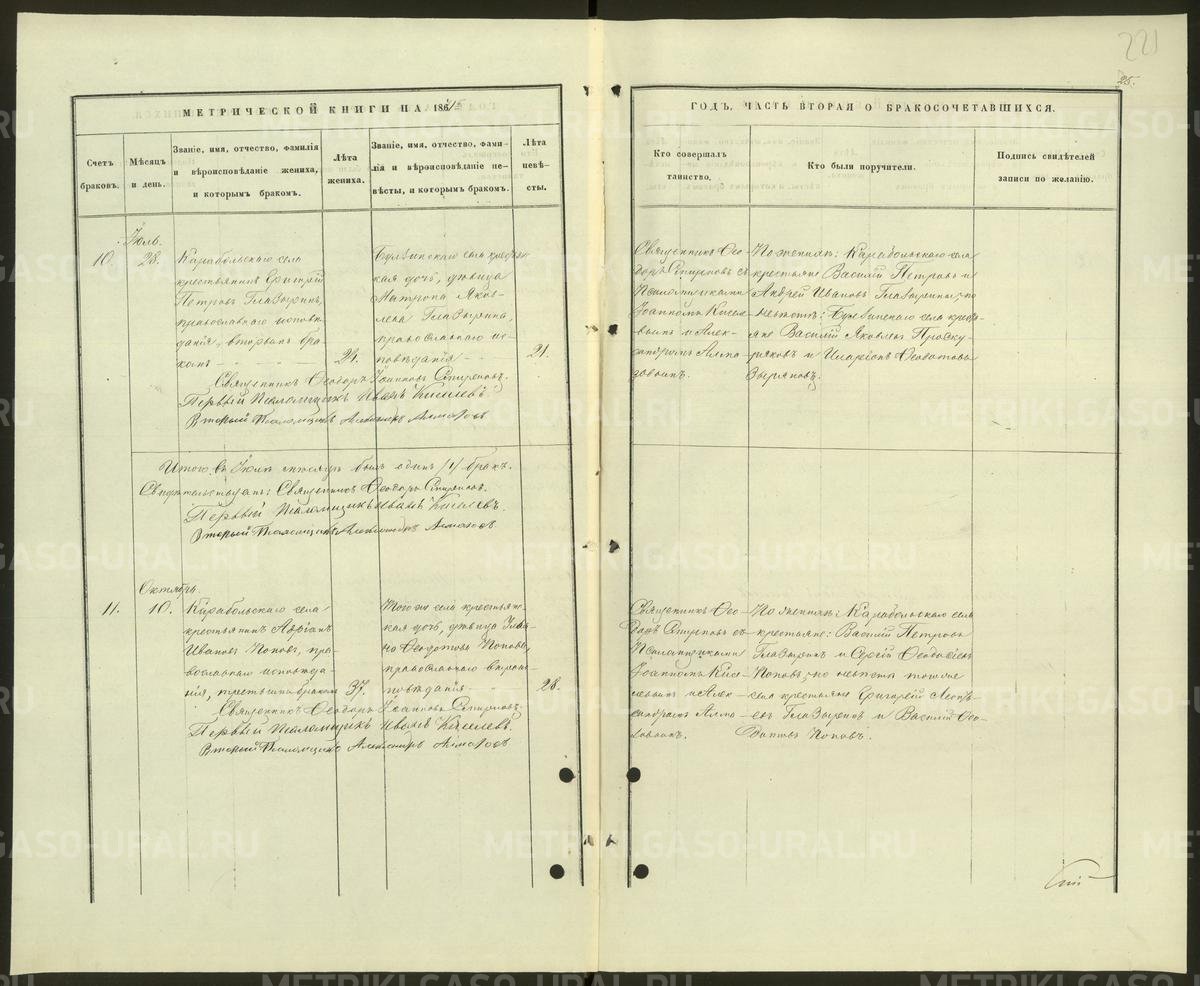 221
25.
МЕТРИЧЕСКОЙ КНИГИ НА 186
ГОДЪ, ЧАСТЬ ВТОРАЯ О БРАКОСОЧЕТАВШИХСЯ.
Счетъ браковъ.
Мѣсяцъ и день.
Званіе, имя, отчество, фамилія
и вѣроисповѣданіе жениха,
и которымъ бракомъ.
Лѣта
жениха.
Званіе, имя, отчество, фами-
лія и вѣроисповѣданіе не-
вѣсты, и которымъ бракомъ.
Лѣта
невѣ-
сты.
Кто совершалъ
таинство.
Кто были поручители.
Подпись свидѣтелей
записи по желанію.
Іюль.
10. 28.
Карабольскаго села
крестьянинъ Григорій
Петровъ Глазыринъ,
православнаго исповѣ-
данія, вторымъ бра-
комъ
24.
села крестьян-
ская дочь, дѣвица
Яков-
лева Глазырина,
православнаго ис-
повѣданія
21.
Священникъ Ѳео-
доръ Стирновъ съ
Псаломщиками
Іоанномъ Кисел-
вымъ и Алек-
сандромъ Алма-
зовымъ.
По женихѣ: Карабольскаго села
крестьяне Василій Петровъ и
Андрей Ивановъ Глазырины; по
невѣстѣ: села кресть-
яне Василій Яковлевъ Проску-
ряковъ и Иларіонъ Ѳеодотовъ
Зыряновъ.
Священникъ Ѳеодоръ Іоанновъ
Первый Псаломщикъ Иванъ Киселевъ
Второй Псаломщикъ Александръ Алмазовъ
Итого въ Іюлѣ мѣсяцѣ былъ одинъ /1/ бракъ.
Свидѣтельствуютъ: Священникъ Ѳеодоръ
Первый Псаломщикъ Иванъ Киселевъ.
Второй Псаломщикъ Александръ Алмазовъ
Октябрь.
11. 10.
Карабольскаго села
крестьянинъ Адріанъ
Ивановъ Поповъ, пра-
вославнаго исповѣда-
нія, третьимъ бракомъ
37.
Того же села крестьян-
ская дочь, дѣвица
Ѳеодотова Попова,
православнаго вѣроис-
повѣданія
28.
Священникъ Ѳео-
доръ съ
Псаломщиками
Іоанномъ Кисе-
левымъ и Алек-
сандромъ Алма-
зовымъ.
По женихѣ: Карабольскаго села
крестьяне: Василій Петровъ
Глазыринъ и Сергій Ѳеодосіевъ
Поповъ; по невѣстѣ того же
села крестьяне Григорій
Глазыринъ и Василій Ѳео-
дотовъ Поповъ.
Священникъ Ѳеодоръ Іоанновъ
Первый Псаломщикъ Иванъ Киселевъ.
Второй Псаломщикъ Александръ Алмазовъ
METRIKI.GASO-URAL.RU